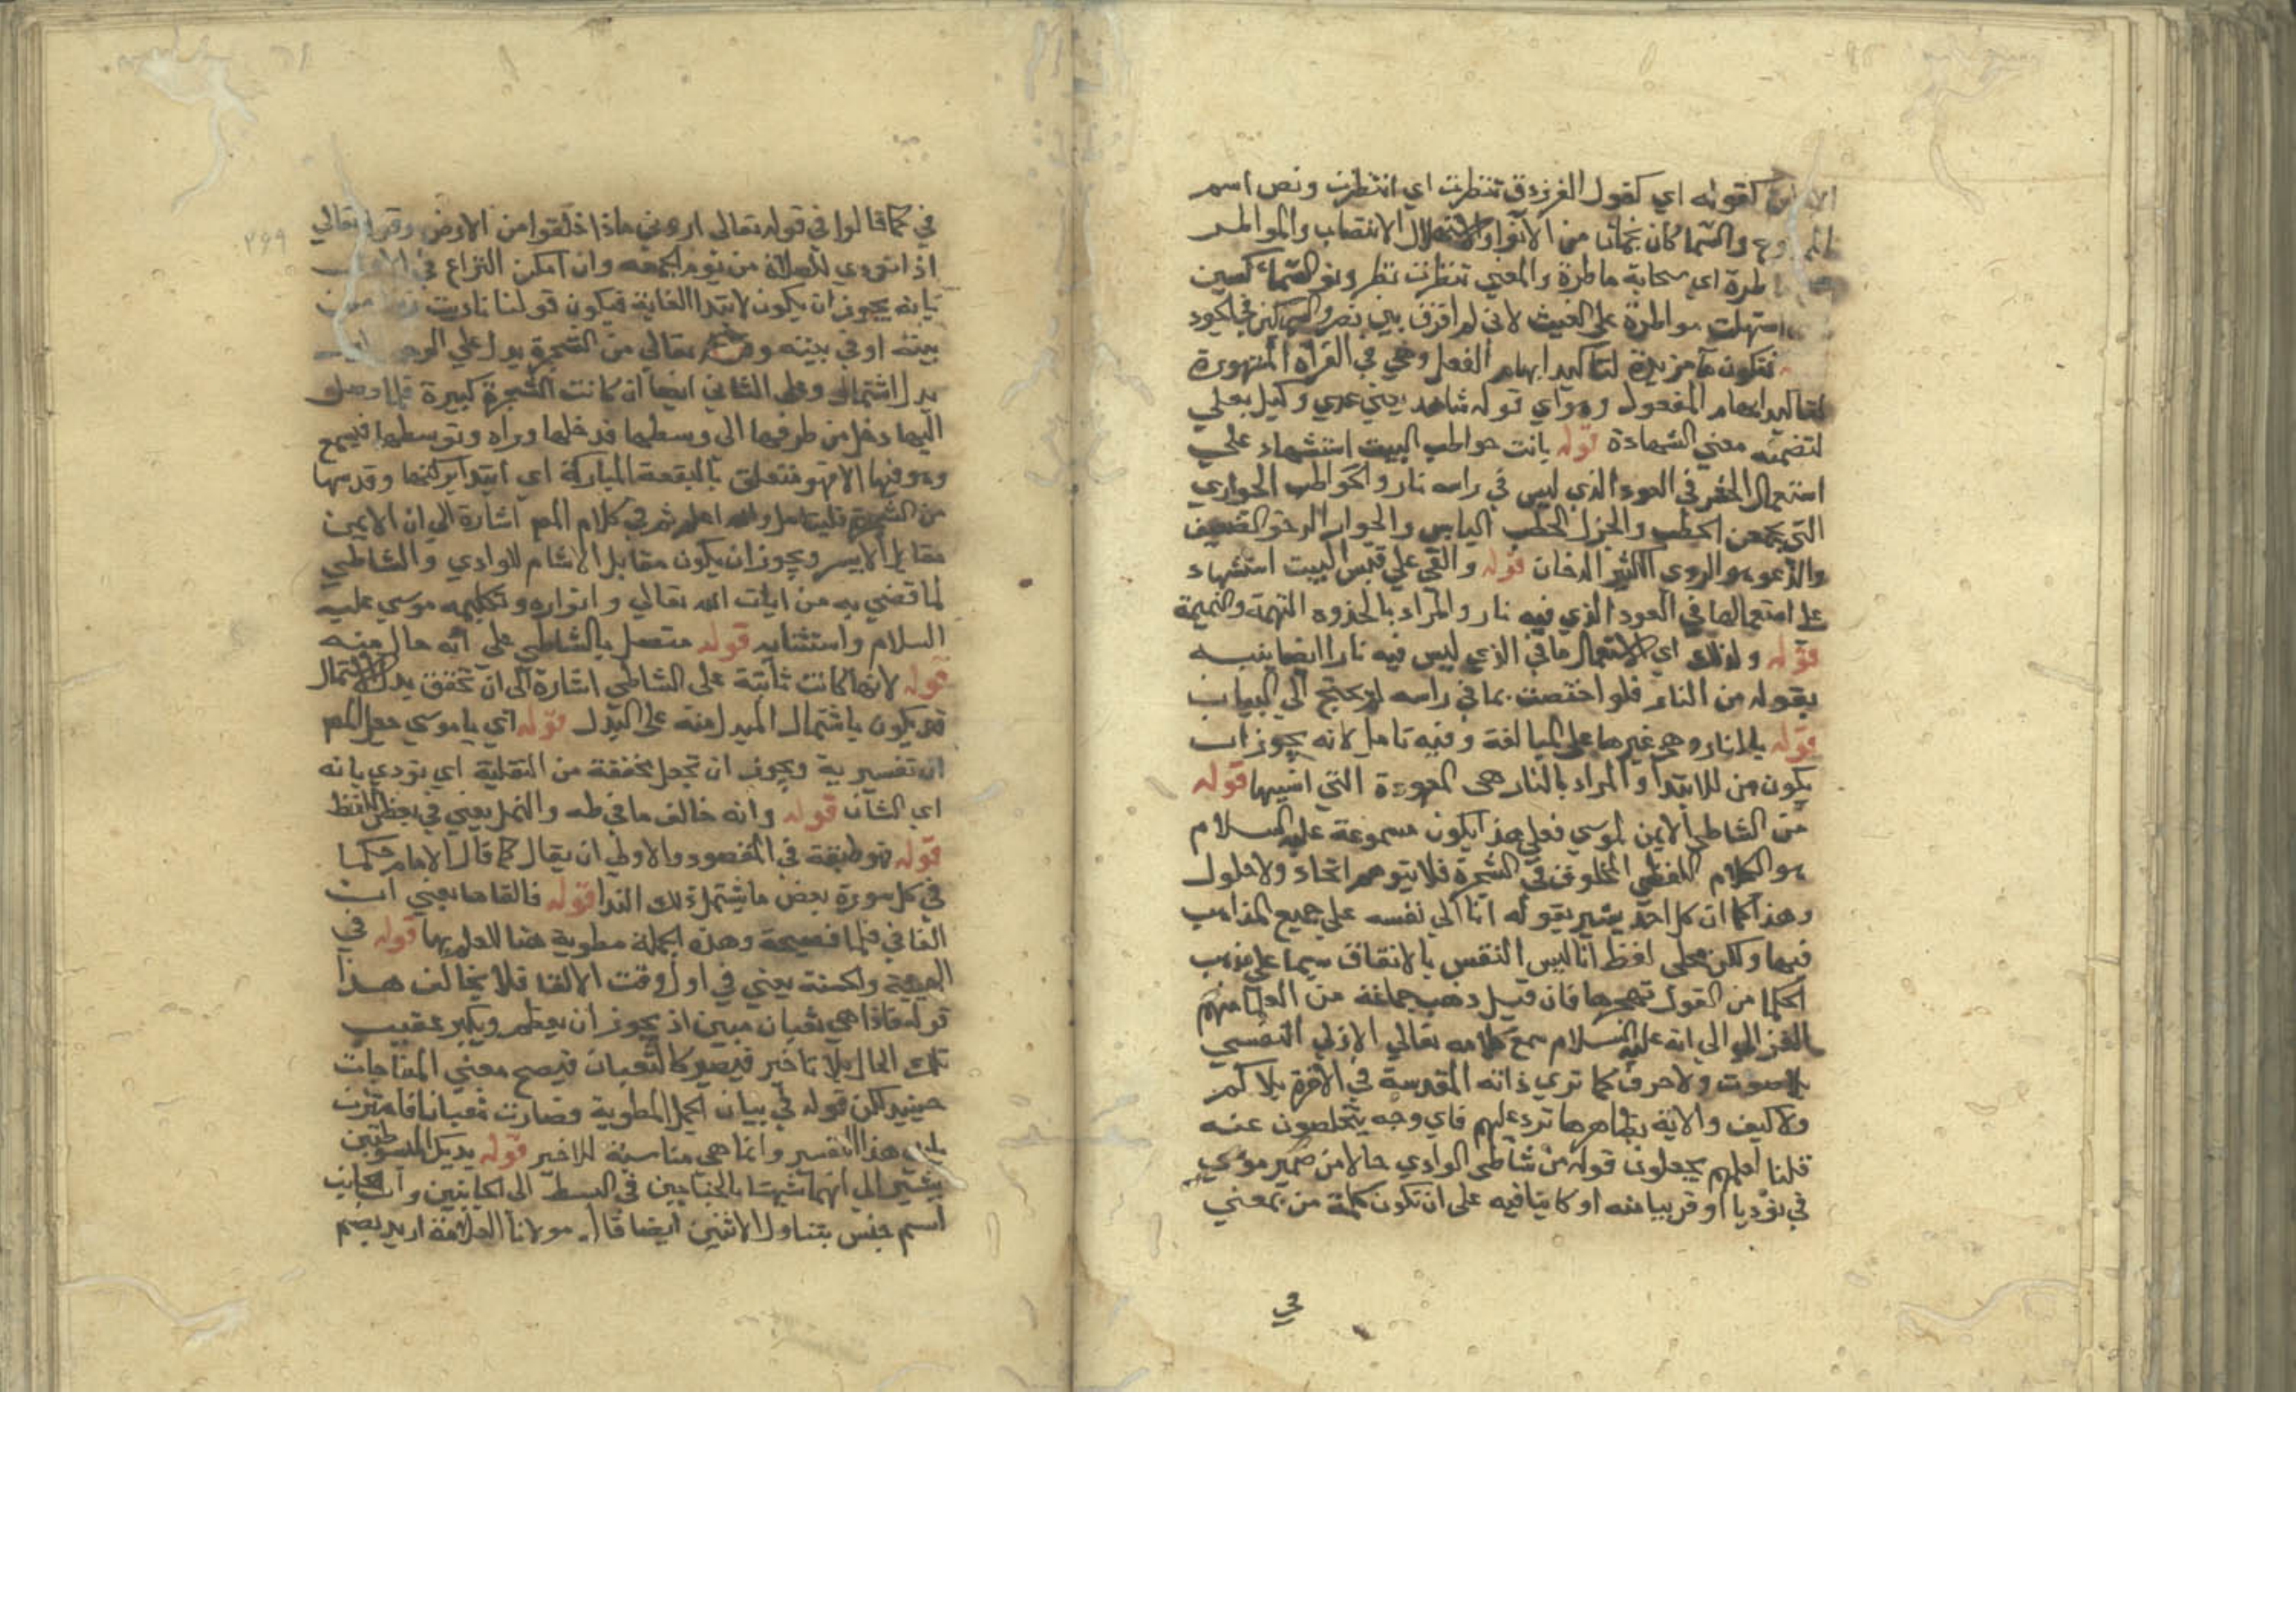 كقوله اي كقول الفرزدق تنظرت اي انتظرت ونص اسم
والسما كان نجمان من الانوا والاستهلال الانتصاب والمواطر
طرة اي سحابة ماطرة والمعني تنظرت نظر ونو السماكين
استهلت مواطرة علي الغيث لاني لم افرق بين نصر والسماكين في الجود
فتكون ما مزيدة لتاكيد ابهام الفعل وهي في القراة المشهورة
لتاكيد ابهام المفعول وهو اي قوله شاهد يعني عدي وكيل بعلي
لتضمنه معني الشهادة قوله باتت حواطب البيت استشهاد علي
استعمال الجذر في العود الذي ليس في راسه نار والحواطب الجواري
التي يجمعن الحطب والجزل الحطب اليابس والخوار الرخو الضعيف
والدعر هو الردي الكثير الدخان قوله والقي علي قبس البيت استشهاد
علي استعمالها في العود الذي فيه نار والمراد بالجذوه التهمة والنميمة
قوله ولذلك اي لاستعمالها في الذي ليس فيه نار ايضا بينه
بقوله من النار فلو اختصت بما في راسه لم يحتج الي البيان
قوله بالنار وهي غيرها علي المبالغة وفيه تامل لانه يجوز ان
يكون من للابتدا والمراد بالنار هي المعهودة التي انسيها قوله
من الشاطي الايمن لموسي فعلي هذا يكون مسموعة عليه السلام
هو الكلام اللفظي المخلوق في الشجرة فلا يتوهم اتحاد ولا حلول
وهذا كما ان كل احد يشير بقوله انا الي نفسه علي جميع المذاهب
فيها ولكن محلي لفظ انا ليس النفس بالاتفاق سيما علي مذهب
الحكما من القول بتجردها فان قيل ذهب جماعة من العلما منهم
الغزالي الي انه عليه السلام سمع كلامه تعالي الازلي النفسي
بلا صوت ولا حرف كما تري ذاته المقدسة في الاخرة بلا كم
ولا كيف والاية بظاهرها ترد عليهم فاي وجه يتخلصون عنه
قلنا لعلهم يجعلون قوله من شاطي الوادي حالا من ضمير موسي
في نوديا او قريبا منه او كاينا فيه علي ان تكون كلمة من بمعني
في
في كما قالوا في قوله تعالي اروني ماذا خلقوا من الارض وقوله تعالي
اذا نودي للصلاة من يوم الجمعه وان امكن النزاع في
بانه يجوز ان يكون لابتدا الغاية فيكون قولنا ناديت
بيته او في بيته وقوله تعالي من الشجرة يدل علي الوجه
بدل اشتمال وعلي الثاني ايضا ان كانت الشجرة كبيرة فلما وصل
اليها دخل من طرفها الي وسطها فدخلها وراه وتوسطها فيسمع
وهو فيها الاتهو متعلق بالبقعة المباركة اي ابتدا بركتها وقدسها
من الشجرة فليتامل والله اعلم ثم في كلام المص اشارة الي ان الايمن
مقابل الايسر ويجوز ان يكون مقابل الاشام للوادي والشاطي
لما قضي به من ايات الله تعالي وانواره وتكليمه موسي عليه
السلام واستثنايه قوله متصل بالشاطي علي انه حال منه
قوله لانها كانت ثابتة علي الشاطي اشارة الي ان تحقق بدل الاشتمال
قد يكون باشتمال المبدل منه علي البدل قوله اي يا موسي جعل المص
ان تفسيرية ويجوز ان تجعل مخففة من الثقلية اي نودي بانه
اي الشان قوله وانه خالف ما في طه والنمل يعني في بعض اللفظ
قوله فهو طبقه في المقصود والاولي ان يقال كما قال الامام حكما
في كل سورة بعض ما يشتمل ذلك الندا قوله فالقاها يعني ان
الفا في فلما فصيحة وهذه الجملة مطوية هنا للعلم بها قوله في
الهيئة والجثة يعني في اول وقت الالقا فلا يخالف هذا
قوله فاذا هي ثعبان مبين اذ يجوز ان يعظم ويكبر عقيب
تلك الحال بلا تاخير فيصير كالثعبان فيصح معني المفاجات
حينيد لكن قوله في بيان الجمل المطوية فصارت ثعبانا فاهتزت
هذا التفسير وانما هي مناسبة للاخير قوله يديك المبسوطتين
يشير الي انهما شبهتا بالجناحين في البسط الي الجانبين والجانب
اسم جنس يتناول الاثنين ايضا قال مولانا العلامة اريد بضم